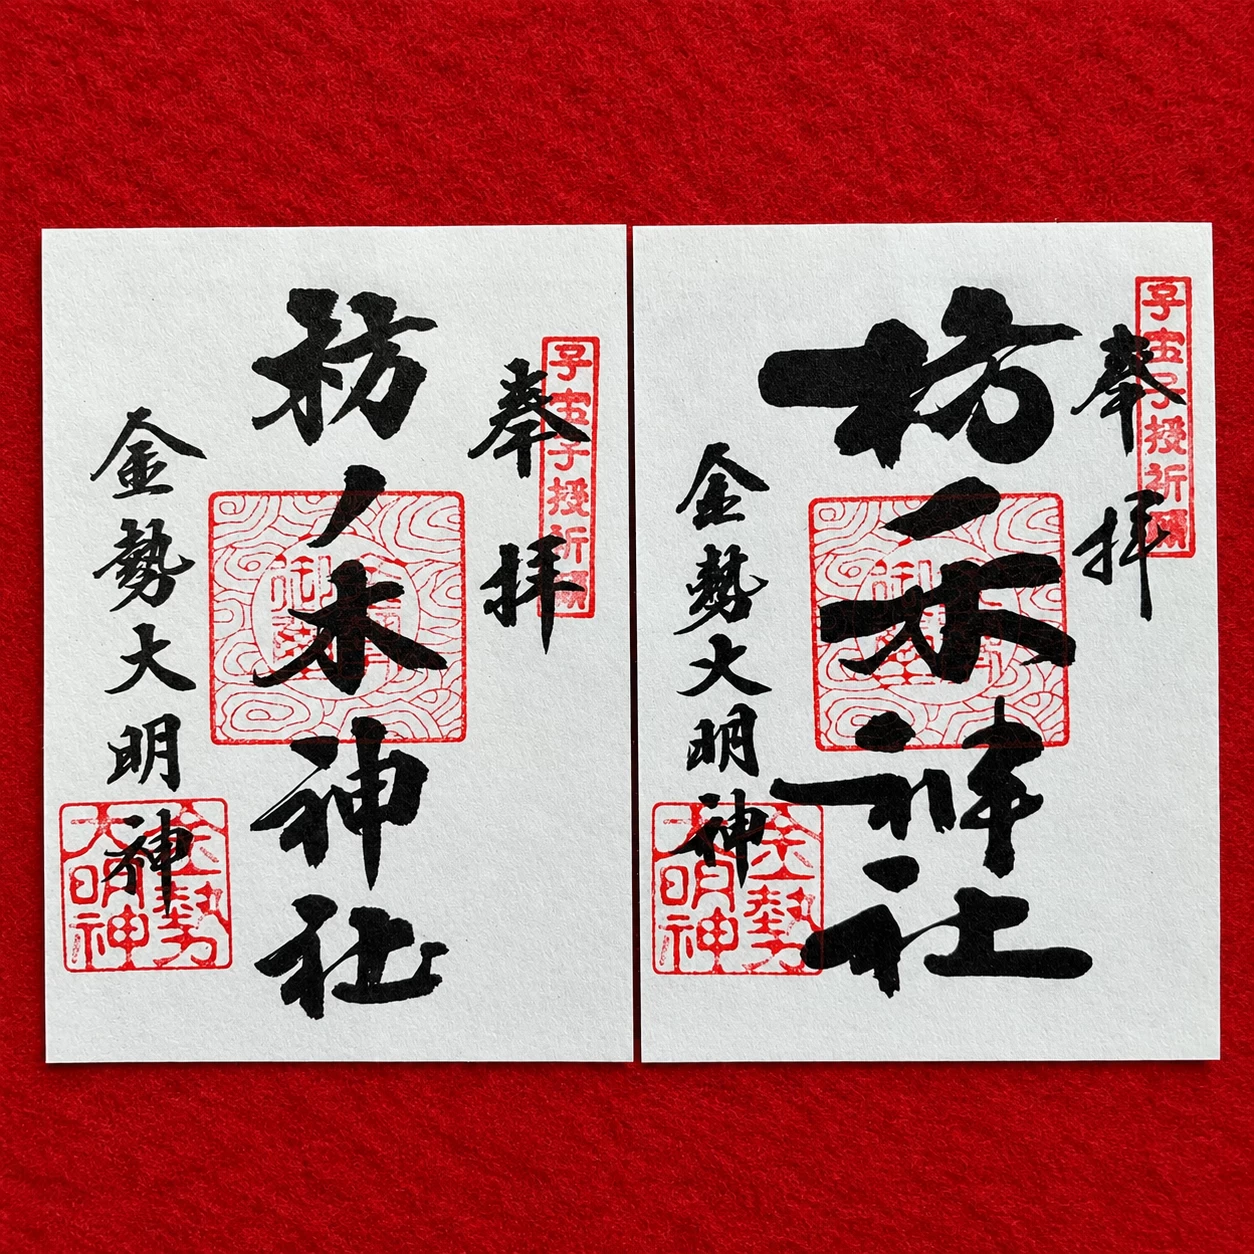 奉拝
子宝子授祈願
枋ノ木神社
金勢大明神
金勢
大明神
奉拝
子宝子授祈願
枋ノ木神社
金勢大明神
金勢
大明神